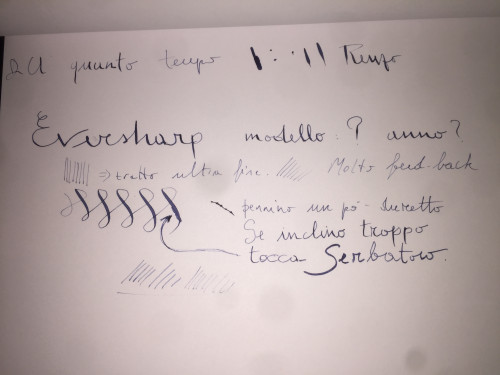 quanto tempo Renzo
Eversharp modello: ? anno?
⇒ tratto ultra fine. Molto feed-back
pennino un pò duretto
Se inclino troppo
tocca Serbatoio.